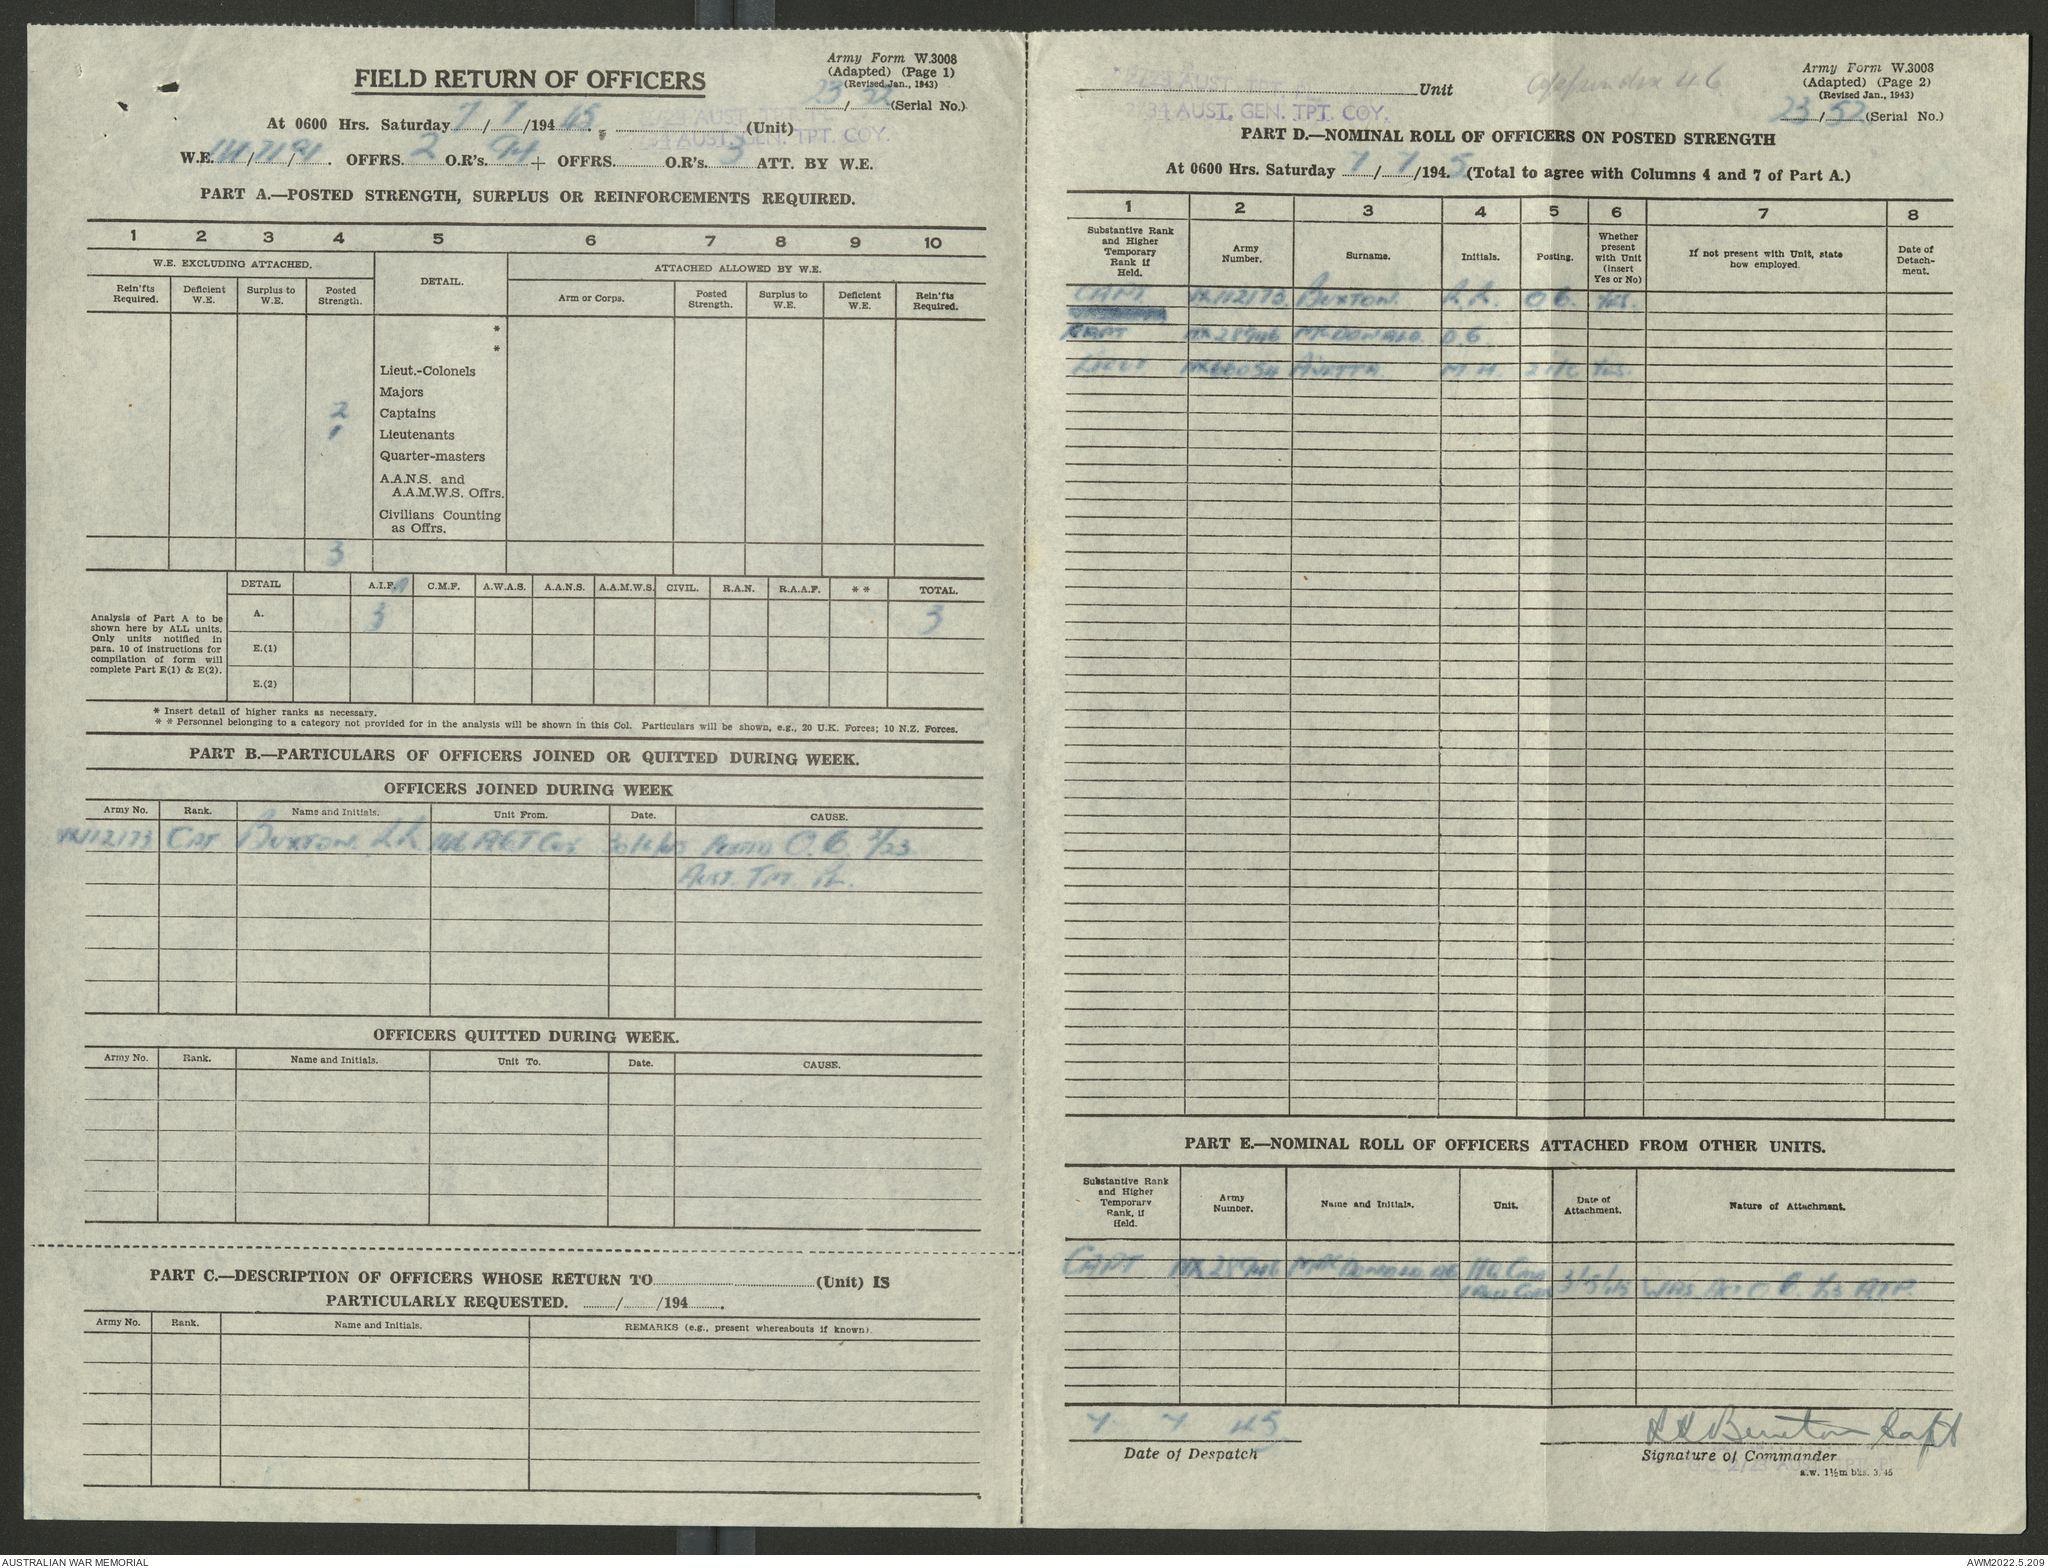 Army Form W.3008
(Adapted) (Page 1)
(Revised Jan., 1943)
23/52 (Serial No.)
FIELD RETURN OF OFFICERS
At 0600 Hrs. Saturday 7/7/1945. (Unit)
34 AUST. GEN. TPT. COY.
W.E. OFFRS. 2 O.R's. 94 + OFFRS. O.R's. 3 ATT. BY W.E.
PART A.—POSTED STRENGTH, SURPLUS OR REINFORCEMENTS REQUIRED.
1 2 3 4 5 6 7 8 9 10
W.E. EXCLUDING ATTACHED. DETAIL. ATTACHED ALLOWED BY W.E.
Rein'fts Required. Deficient W.E. Surplus to W.E. Posted Strength. Arm or Corps. Posted Strength. Surplus to W.E. Deficient W.E. Rein'fts Required.
*
*
Lieut.-Colonels
Majors
2 Captains
1 Lieutenants
Quarter-masters
A.A.N.S. and
A.A.M.W.S. Offrs.
Civilians Counting
as Offrs.
3
DETAIL A.I.F. C.M.F. A.W.A.S. A.A.N.S. A.A.M.W.S. CIVIL. R.A.N. R.A.A.F. * * TOTAL.
Analysis of Part A to be
shown here by ALL units.
Only units notified in
para. 10 of instructions for
compilation of form will
complete Part E(1) & E(2).
A. 3 3
E.(1)
E.(2)
* Insert detail of higher ranks as necessary.
* * Personnel belonging to a category not provided for in the analysis will be shown in this Col. Particulars will be shown, e.g., 20 U.K. Forces; 10 N.Z. Forces.
PART B.—PARTICULARS OF OFFICERS JOINED OR QUITTED DURING WEEK.
OFFICERS JOINED DURING WEEK
Army No. Rank. Name and Initials. Unit From. Date. CAUSE.
VX112173 CAPT BUXTON. L.L. Coy 30/6/45 POSTED O.C. 2/23
AUST. TPT. PL.
OFFICERS QUITTED DURING WEEK.
Army No. Rank. Name and Initials. Unit To. Date. CAUSE.
PART C.—DESCRIPTION OF OFFICERS WHOSE RETURN TO (Unit) IS
PARTICULARLY REQUESTED. / /194 .
Army No. Rank. Name and Initials. REMARKS (e.g., present whereabouts if known).
Appendix 46
Army Form W.3008
(Adapted) (Page 2)
(Revised Jan., 1943)
23/52 (Serial No.)
Unit
34 AUST. GEN. TPT. COY.
PART D.—NOMINAL ROLL OF OFFICERS ON POSTED STRENGTH
At 0600 Hrs. Saturday 7/7/1945. (Total to agree with Columns 4 and 7 of Part A.)
1 2 3 4 5 6 7 8
Substantive Rank and Higher Temporary Rank if Held. Army Number. Surname. Initials. Posting. Whether present with Unit (insert Yes or No) If not present with Unit, state how employed. Date of Detachment.
CAPT VX112173 BUXTON. L.L. O.C. YES.
CAPT NX28946 McDONALD. D.G.
LIEUT M.H. 2 I/C YES.
PART E.—NOMINAL ROLL OF OFFICERS ATTACHED FROM OTHER UNITS.
Substantive Rank and Higher Temporary Rank, if Held. Army Number. Name and Initials. Unit. Date of Attachment. Nature of Attachment.
CAPT NX28946 McDONALD D.G. HQ Comd
WAS
7 7 45
Date of Despatch
L L Buxton Capt
Signature of Commander
a.w. 1½m bks. 3/45
AUSTRALIAN WAR MEMORIAL
AWM2022.5.209